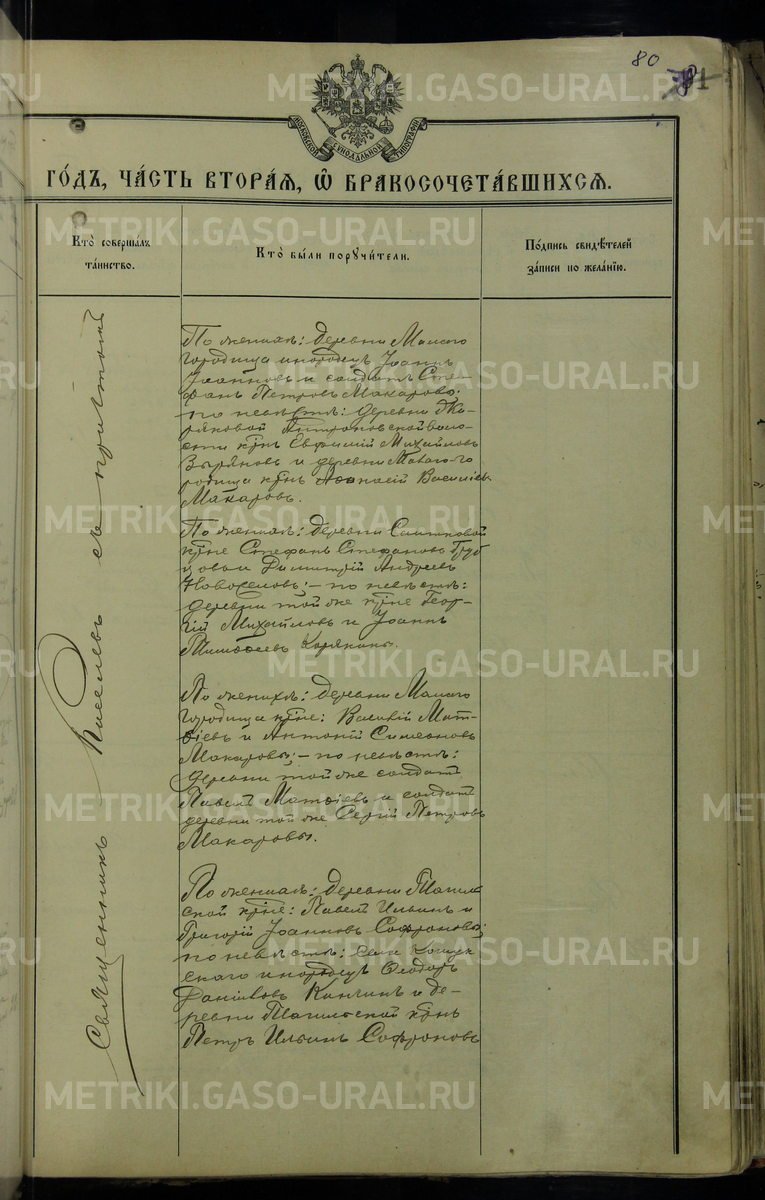 80
81
МОСКОВСКОЙ СѴНОДАЛЬНОЙ ТИПОГРАФІИ
ГО́ДЪ, ЧА́СТЬ ВТОРА́Я, Ѡ҆ БРАКОСОЧЕТА́ВШИХСЯ.
Кто̀ соверша́лъ
та́инство.
Кто̀ бы́ли поручи́тели.
По́дпись свидѣ́телей
за́писи по жела́нію.
Священникъ Киселевъ съ причтомъ
По женихѣ: деревни Малаго
городища инородецъ Іоаннъ
Іоанновъ и солдатъ Сте-
фанъ Петровъ Макаровы;
по невѣстѣ: деревни Ко-
ряковой Антроповской воло-
сти кр̃нъ Евфимій Михайловъ
Зыряновъ и деревни Малаго го
родища кр̃нъ Аѳанасій Васильевъ
Макаровъ.
По женихѣ: деревни Саитковой
кр̃не Стефанъ Стефановъ
и Димитрій Андреевъ
Новоселовъ; – по невѣстѣ:
деревни той же кр̃не Геор-
гій Михайловъ и Іоаннъ
Коряковы.
По женихѣ: деревни Малаго
городища кр̃не: Василій Мат-
ѳіевъ и Антоній Симеоновъ
Макаровы; – по невѣстѣ:
деревни той же солдатъ
Павелъ Матѳіевъ и солдатъ
деревни той же Сергій Петровъ
Макаровы.
По женихѣ: деревни Тагиль
ской кр̃не: Павелъ Ильинъ и
Григорій Іоанновъ Софроновы;
по невѣстѣ: села Кошук
скаго инородецъ Ѳеодоръ
Даніиловъ Кинчинъ и де-
ревни Тагильской кр̃нъ
Петръ Ильинъ Софроновъ
METRIKI.GASO-URAL.RU